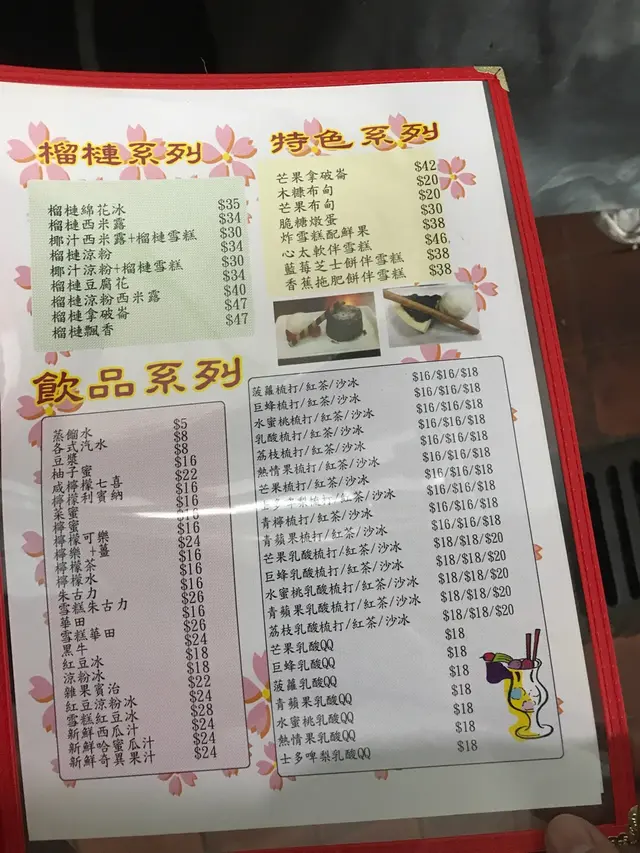 榴槤系列
榴槤綿花冰 $35
榴槤西米露 $34
椰汁西米露+榴槤雪糕 $30
榴槤涼粉 $34
椰汁涼粉+榴槤雪糕 $30
榴槤豆腐花 $34
榴槤涼粉西米露 $40
榴槤拿破崙 $47
榴槤飄香 $47
特色系列
芒果拿破崙 $42
木糠布甸 $20
芒果布甸 $20
脆糖燉蛋 $30
炸雪糕配鮮果 $38
心太軟伴雪糕 $46
藍莓芝士餅伴雪糕 $38
香蕉拖肥餅伴雪糕 $38
飲品系列
蒸餾水 $5
各式汽水 $8
豆漿 $8
柚子蜜 $16
咸檸檬七喜 $22
檸檬利賓納 $16
菜蜜 $16
檸蜜 $18
檸檬可樂 $16
檸樂+薑 $24
檸檬茶 $16
檸檬水 $16
朱古力 $16
雪糕朱古力 $26
華田 $16
雪糕華田 $26
黑牛 $24
紅豆冰 $18
涼粉冰 $18
雜果賓治 $22
紅豆涼粉冰 $24
雪糕紅豆冰 $28
新鮮西瓜汁 $24
新鮮哈蜜瓜汁 $24
新鮮奇異果汁 $24
菠蘿梳打/紅茶/沙冰 $16/$16/$18
巨蜂梳打/紅茶/沙冰 $16/$16/$18
水蜜桃梳打/紅茶/沙冰 $16/$16/$18
乳酸梳打/紅茶/沙冰 $16/$16/$18
荔枝梳打/紅茶/沙冰 $16/$16/$18
熱情果梳打/紅茶/沙冰 $16/$16/$18
芒果梳打/紅茶/沙冰 $16/$16/$18
士多啤梨梳打/紅茶/沙冰 $16/$16/$18
青檸梳打/紅茶/沙冰 $16/$16/$18
青蘋果梳打/紅茶/沙冰 $16/$16/$18
芒果乳酸梳打/紅茶/沙冰 $18/$18/$20
巨蜂乳酸梳打/紅茶/沙冰 $18/$18/$20
水蜜桃乳酸梳打/紅茶/沙冰 $18/$18/$20
青蘋果乳酸梳打/紅茶/沙冰 $18/$18/$20
荔枝乳酸梳打/紅茶/沙冰 $18/$18/$20
芒果乳酸QQ $18
巨蜂乳酸QQ $18
菠蘿乳酸QQ $18
青蘋果乳酸QQ $18
水蜜桃乳酸QQ $18
熱情果乳酸QQ $18
士多啤梨乳酸QQ $18